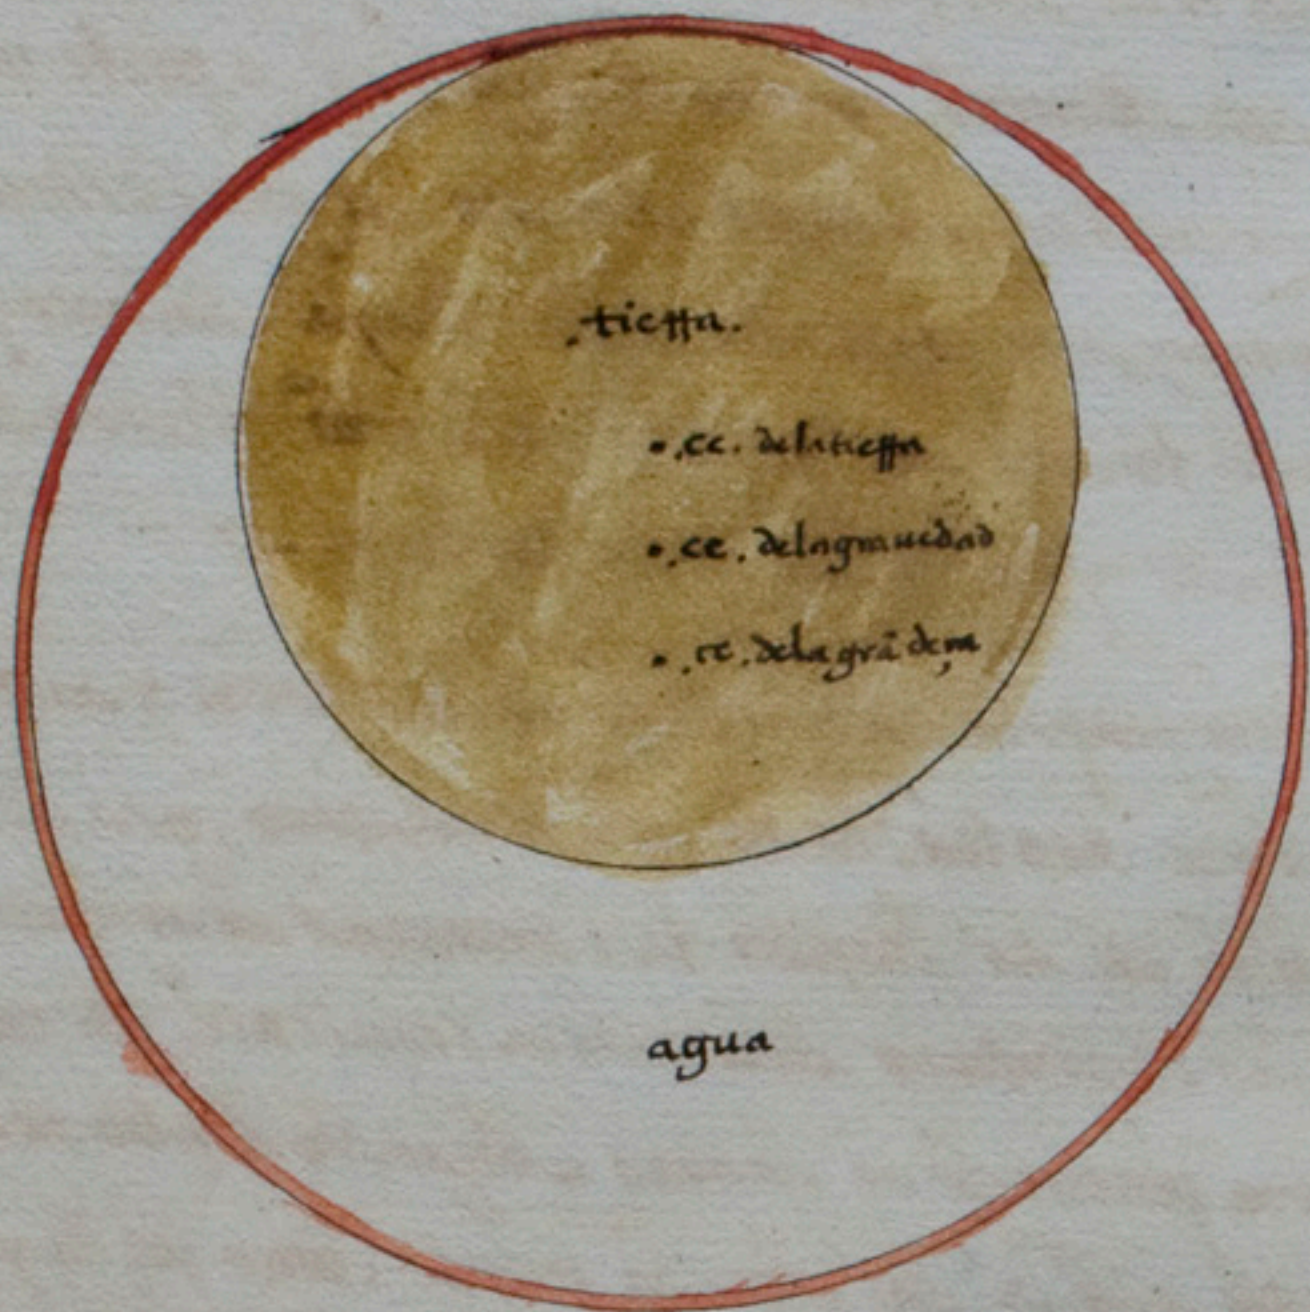 .tierra.
.ce. dela tierra
.ce. dela grauedad
.ce. dela grãdeza
agua